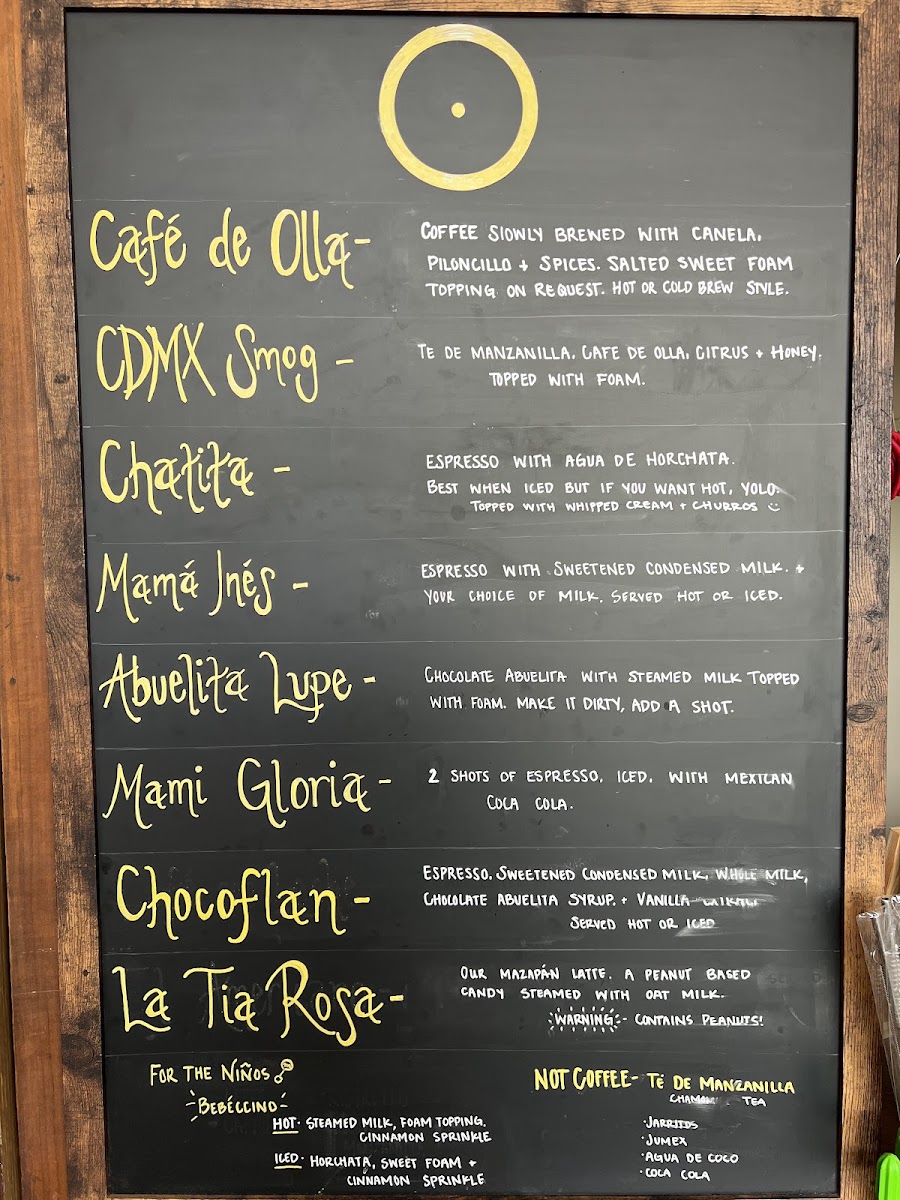 Café de Olla-
COFFEE SLOWLY BREWED WITH CANELA,
PILONCILLO + SPICES. SALTED SWEET FOAM
TOPPING ON REQUEST. HOT OR COLD BREW STYLE.
CDMX Smog -
TE DE MANZANILLA, CAFE DE OLLA, CITRUS + HONEY.
TOPPED WITH FOAM.
Chatita -
ESPRESSO WITH AGUA DE HORCHATA.
BEST WHEN ICED BUT IF YOU WANT HOT, YOLO.
TOPPED WITH WHIPPED CREAM + CHURROS
Mamá Inés -
ESPRESSO WITH SWEETENED CONDENSED MILK. +
YOUR CHOICE OF MILK. SERVED HOT OR ICED.
Abuelita Lupe -
CHOCOLATE ABUELITA WITH STEAMED MILK TOPPED
WITH FOAM. MAKE IT DIRTY, ADD A SHOT.
Mami Gloria -
2 SHOTS OF ESPRESSO, ICED, WITH MEXICAN
COCA COLA.
Chocoflan -
ESPRESSO, SWEETENED CONDENSED MILK, WHOLE MILK,
CHOCOLATE ABUELITA SYRUP. + VANILLA
SERVED HOT OR ICED
La Tia Rosa-
OUR MAZAPÁN LATTE. A PEANUT BASED
CANDY STEAMED WITH OAT MILK.
WARNING - CONTAINS PEANUTS!
FOR THE NIÑOS
-BEBÉCCINO-
HOT- STEAMED MILK, FOAM TOPPING,
CINNAMON SPRINKLE
ICED- HORCHATA, SWEET FOAM +
CINNAMON SPRINKLE
NOT COFFEE- TÉ DE MANZANILLA
TEA
·JARRITOS
·JUMEX
·AGUA DE COCO
·COCA COLA